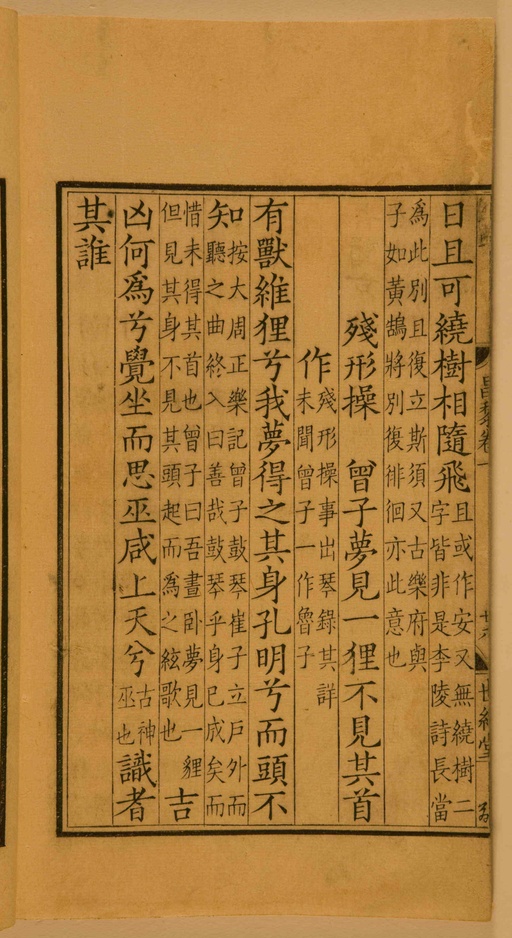 昌黎卷一
世綵堂
日且可繞樹相隨飛且或作安又無繞樹二
字皆非是李陵詩長當
為此別且復立斯須又古樂府與
子如黃鵠將別復徘徊亦此意也
殘形操 曾子夢見一狸不見其首
作殘形操事出琴錄其詳
未聞曾子一作魯子
有獸維狸兮我夢得之其身孔明兮而頭不
知按大周正樂記曾子鼓琴崔子立戶外而
聽之曲終入曰善哉鼓琴乎身已成矣而
惜未得其首也曾子曰吾晝臥夢見一貍
但見其身不見其頭起而為之絃歌也吉
凶何為兮覺坐而思巫咸上天兮古神
巫也識者
其誰